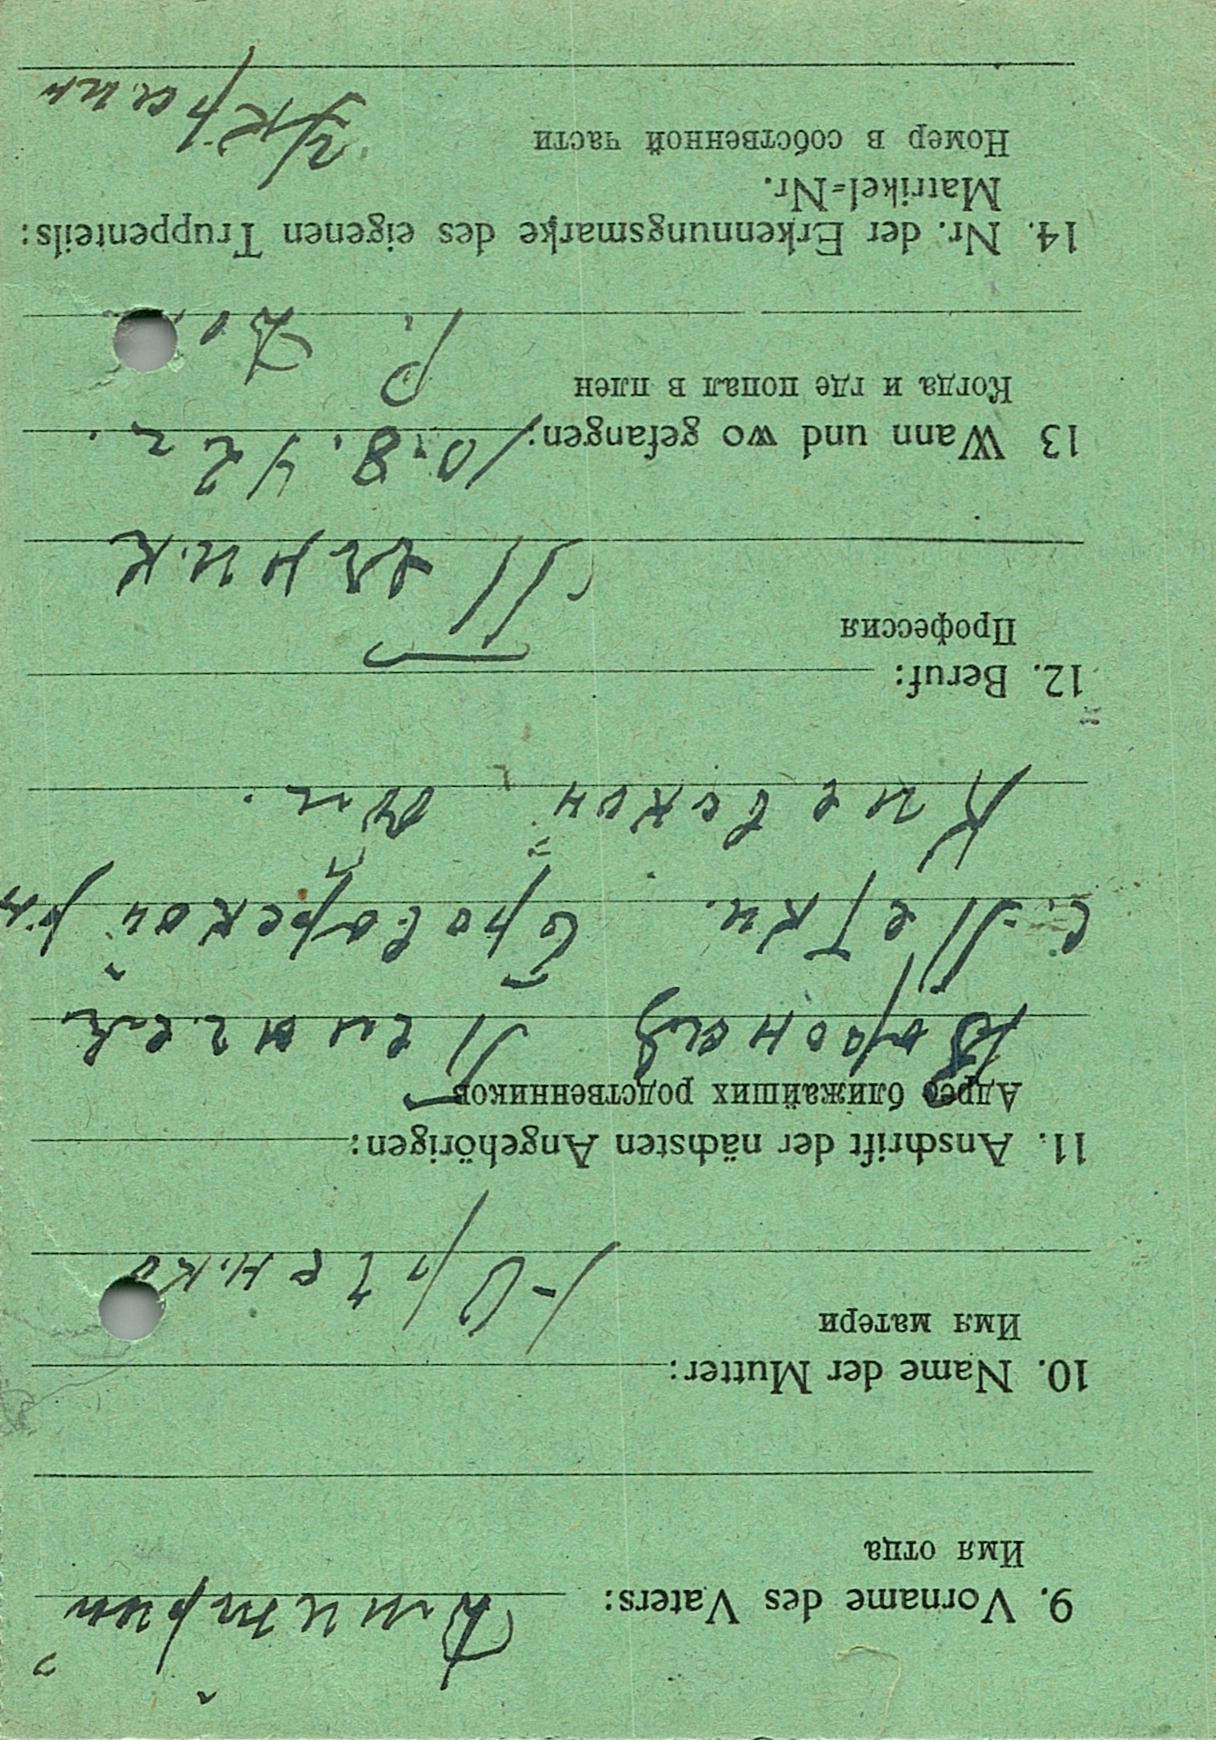 9. Vorname des Vaters: Дмитрий
Имя отца
10. Name der Mutter:
Имя матери Юрченко
11. Anschrift der nächsten Angehörigen:
Адрес ближайших родственников
с. Летки. Броварской р-н
Киевской
12. Beruf:
Профессия
13 Wann und wo gefangen: 10.8.42 г.
Когда и где попал в плен
Р. До
14. Nr. der Erkennungsmarke des eigenen Truppenteils:
Matrikel-Nr.
Номер в собственной части Украин